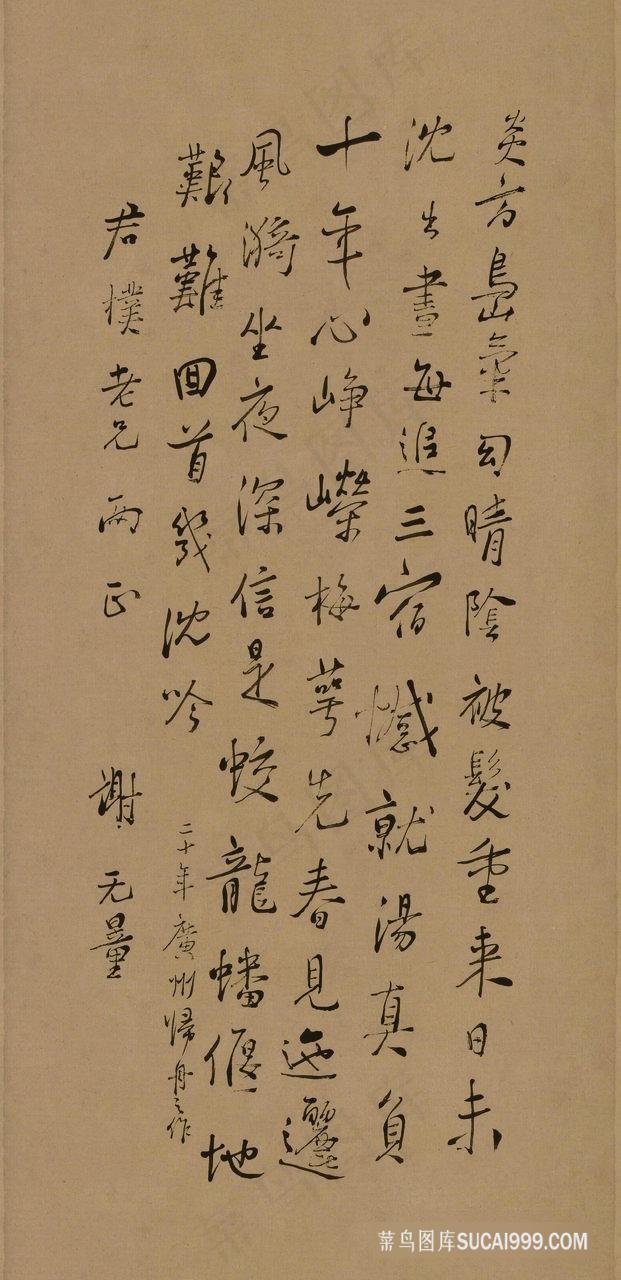 炎方島氣幻晴陰被髮重來日未
沈出晝每追三宿憾就湯真負
十年心崢嶸梅萼先春見迤邐
風漪坐夜深信是蛟龍蟠偃地
艱難回首幾沈吟
二十年廣州歸舟之作
君樸老兄兩正
謝无量
菜鸟图库SUCAI999.COM